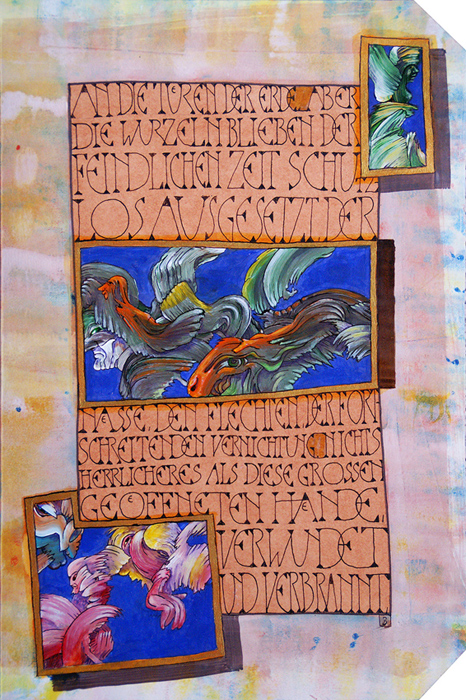 AN DIE TOREN DER ERDE ABER
DIE WURZELN BLIEBEN DER
FEINDLICHEN ZEIT SCHUTZ
LOS AUSGESETZT DER
NÄSSE DEN FLECHTEN DER FORT
SCHREITENDEN VERNICHTUNG NICHTS
HERRLICHERES ALS DIESE GROSSEN
GEÖFFNETEN HÄNDE
VERWUNDET
UND VERBRANNT